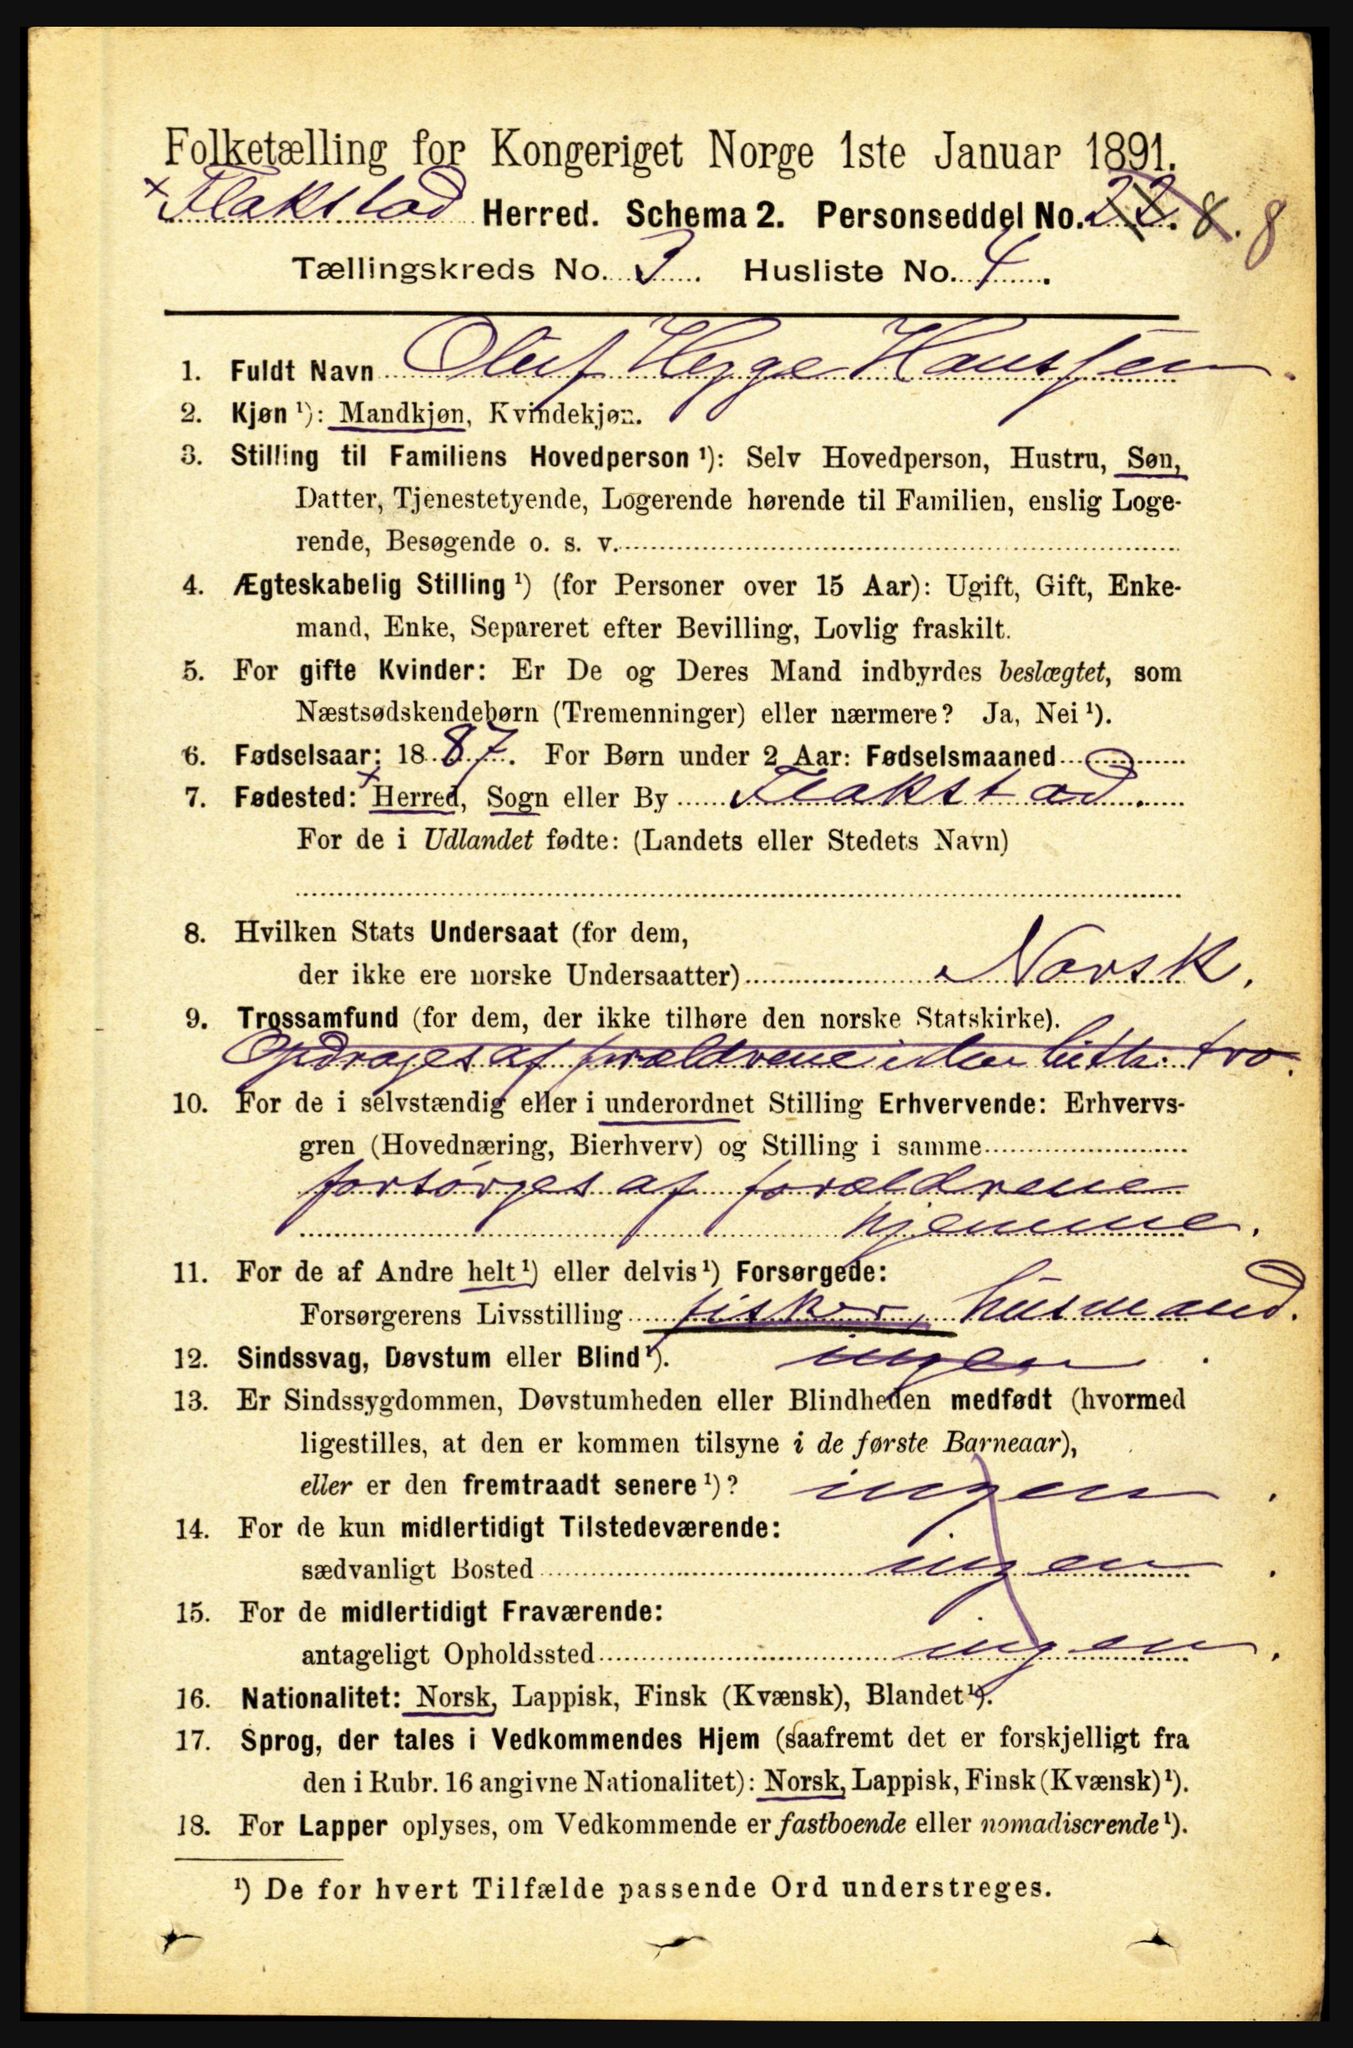 Folketælling for Kongeriget Norge 1ste Januar 1891.
Flakstad Herred. Schema 2. Personseddel No. 22. 8. 8
Tællingskreds No. 3. Husliste No. 4.
1. Fuldt Navn Oluf Hegge Hanssen.
2. Kjøn ¹): Mandkjøn, Kvindekjøn.
3. Stilling til Familiens Hovedperson ¹): Selv Hovedperson, Hustru, Søn,
Datter, Tjenestetyende, Logerende hørende til Familien, enslig Loge-
rende, Besøgende o. s. v.
4. Ægteskabelig Stilling ¹) (for Personer over 15 Aar): Ugift, Gift, Enke-
mand, Enke, Separeret efter Bevilling, Lovlig fraskilt.
5. For gifte Kvinder: Er De og Deres Mand indbyrdes beslægtet, som
Næstsødskendebørn (Tremenninger) eller nærmere? Ja, Nei ¹).
6. Fødselsaar: 1887. For Børn under 2 Aar: Fødselsmaaned
7. Fødested: Herred, Sogn eller By Flakstad.
For de i Udlandet fødte: (Landets eller Stedets Navn)
8. Hvilken Stats Undersaat (for dem,
der ikke ere norske Undersaatter) Norsk.
9. Trossamfund (for dem, der ikke tilhøre den norske Statskirke).
Opdrages af forældrene i den luth. tro.
10. For de i selvstændig eller i underordnet Stilling Erhvervende: Erhvervs-
gren (Hovednæring, Bierhverv) og Stilling i samme
forsørges af forældrene
hjemme.
11. For de af Andre helt ¹) eller delvis ¹) Forsørgede:
Forsørgerens Livsstilling fisker, husmand.
12. Sindssvag, Døvstum eller Blind ¹). ingen.
13. Er Sindssygdommen, Døvstumheden eller Blindheden medfødt (hvormed
ligestilles, at den er kommen tilsyne i de første Barneaar),
eller er den fremtraadt senere ¹)? ingen.
14. For de kun midlertidigt Tilstedeværende:
sædvanligt Bosted ingen.
15. For de midlertidigt Fraværende:
antageligt Opholdssted ingen.
16. Nationalitet: Norsk, Lappisk, Finsk (Kvænsk), Blandet ¹).
17. Sprog, der tales i Vedkommendes Hjem (saafremt det er forskjelligt fra
den i Rubr. 16 angivne Nationalitet): Norsk, Lappisk, Finsk (Kvænsk) ¹).
18. For Lapper oplyses, om Vedkommende er fastboende eller nomadiserende ¹).
¹) De for hvert Tilfælde passende Ord understreges.